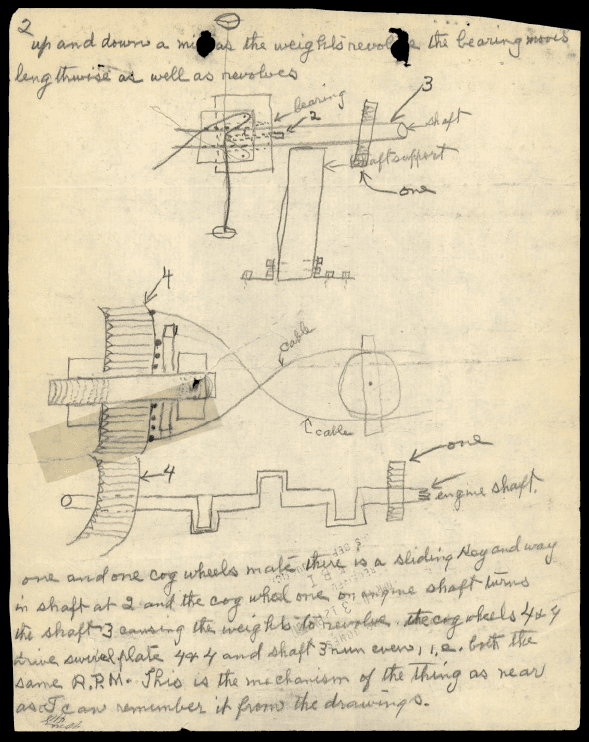 2
up and down a mi as the weights revolve the bearing moves
lengthwise as well as revolves
bearing
2
3
shaft
shaft support
one
4
cable
cable
one
4
engine shaft.
one and one cog wheels mate there is a sliding Key and way
in shaft at 2 and the cog wheel one on engine shaft turns
the shaft 3 causing the weights to revolve. the cog wheels 4x4
drive swivel plate 4x4 and shaft 3 run even, i,e. both the
same R.P.M. This is the mechanism of the thing as near
as I can remember it from the drawings.